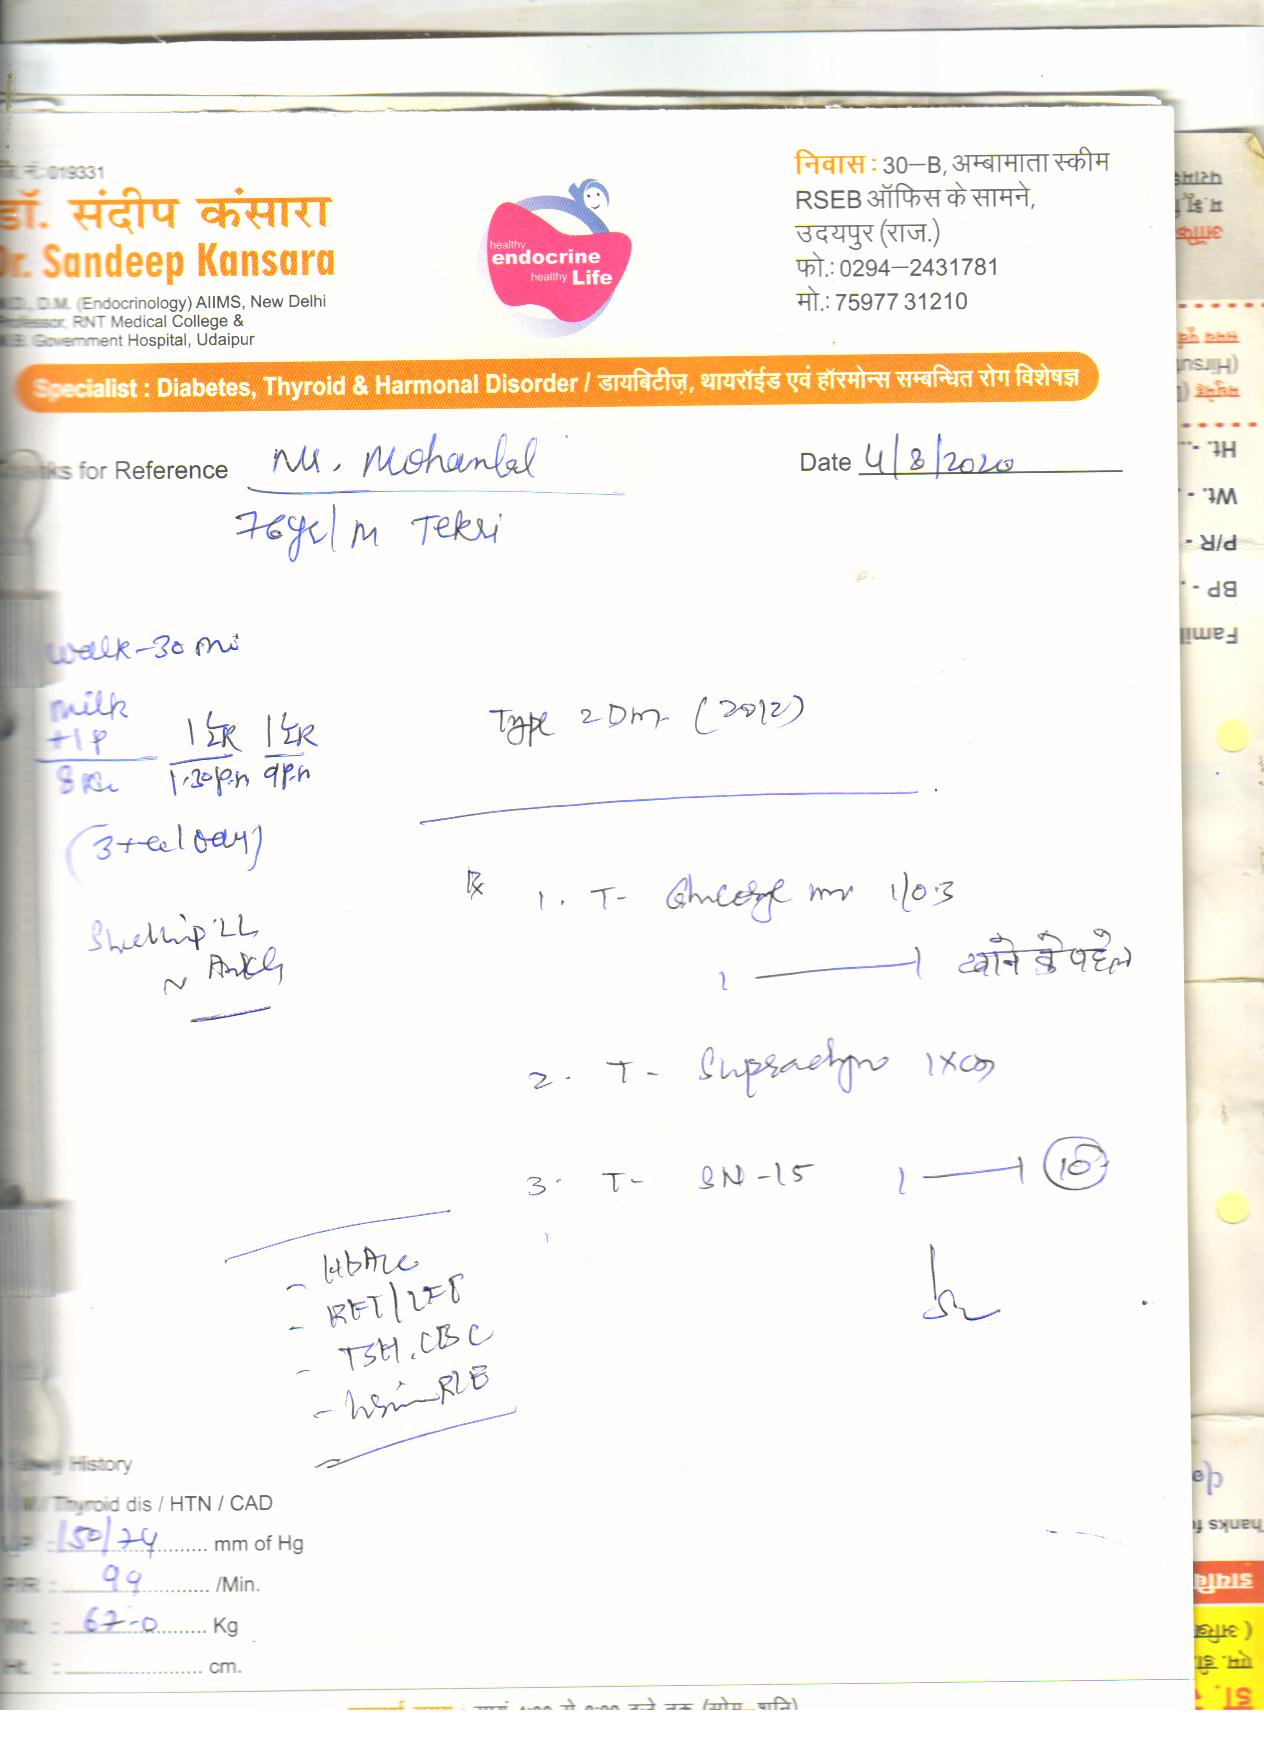 019331
डॉ. संदीप कंसारा
Dr. Sandeep Kansara
D.M. (Endocrinology) AIIMS, New Delhi
Professor, RNT Medical College &
Government Hospital, Udaipur
healthy
endocrine
healthy Life
निवास : 30-B, अम्बामाता स्कीम
RSEB ऑफिस के सामने,
उदयपुर (राज.)
फो.: 0294-2431781
मो.: 75977 31210
Specialist : Diabetes, Thyroid & Harmonal Disorder / डायबिटीज़, थायरॉईड एवं हॉरमोन्स सम्बन्धित रोग विशेषज्ञ
Thanks for Reference Mr. Mohanlal
Date 4/8/2020
76yr/M Tekri
Walk-30 mi
milk
1.30pm 9pm
Type 2 Dm (2012)
Rx 1. T- mr 1/0.3
1 — 1 खाने के पहले
2. T- Supradyn
3. T- SN-15 1 — 1 10
- HbA1c
- RFT/LFT
- TSH, CBC
History
Thyroid dis / HTN / CAD
150/74 mm of Hg
P/R : 99 /Min.
Wt. : 67.0 Kg
Ht. : cm.
Ht. -
Wt. -
P/R -
BP -
Famil